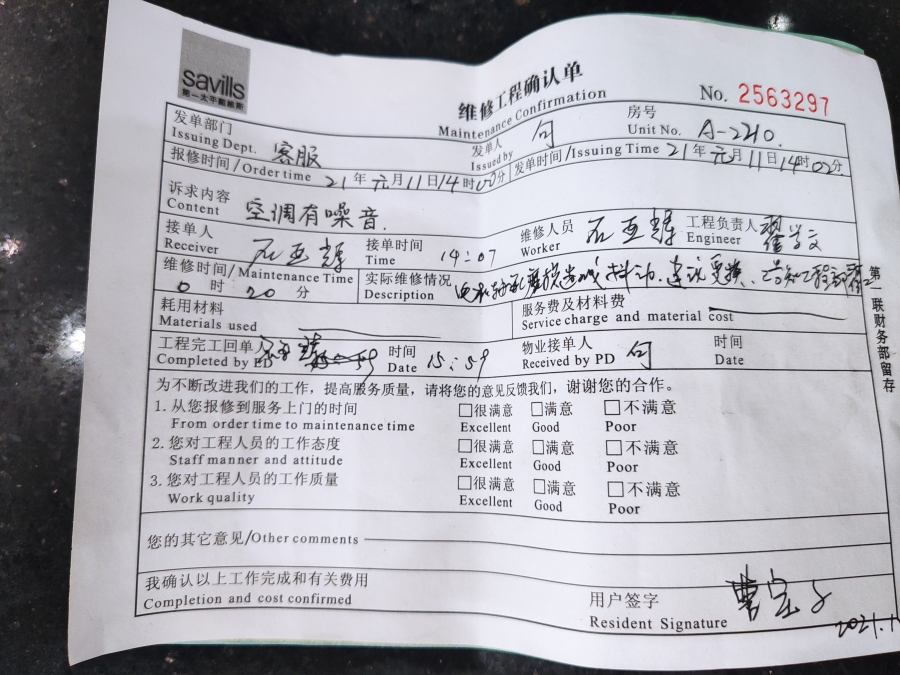 savills
第一太平戴维斯
维修工程确认单
Maintenance Confirmation
No. 2563297
发单部门 客服 发单人 句 房号 A-2210.
Issuing Dept. Issued by Unit No.
报修时间/Order time 21年元月11日14时00分 发单时间/Issuing Time 21年元月11日14时02分
诉求内容 空调有噪音.
Content
接单人 石亚辉 接单时间 14:07 维修人员 石亚辉 工程负责人
Receiver Time Worker Engineer
维修时间/Maintenance Time 实际维修情况 建议更换、
0时20分 Description
耗用材料 服务费及材料费
Materials used Service charge and material cost
工程完工回单人 时间 15:59 物业接单人 句 时间
Completed by ED Date Received by PD Date
为不断改进我们的工作，提高服务质量，请将您的意见反馈我们，谢谢您的合作。
1. 从您报修到服务上门的时间 □很满意 □满意 □不满意
From order time to maintenance time Excellent Good Poor
2. 您对工程人员的工作态度 □很满意 □满意 □不满意
Staff manner and attitude Excellent Good Poor
3. 您对工程人员的工作质量 □很满意 □满意 □不满意
Work quality Excellent Good Poor
您的其它意见/Other comments
我确认以上工作完成和有关费用
Completion and cost confirmed
用户签字
Resident Signature
2021.1
第二联财务部留存